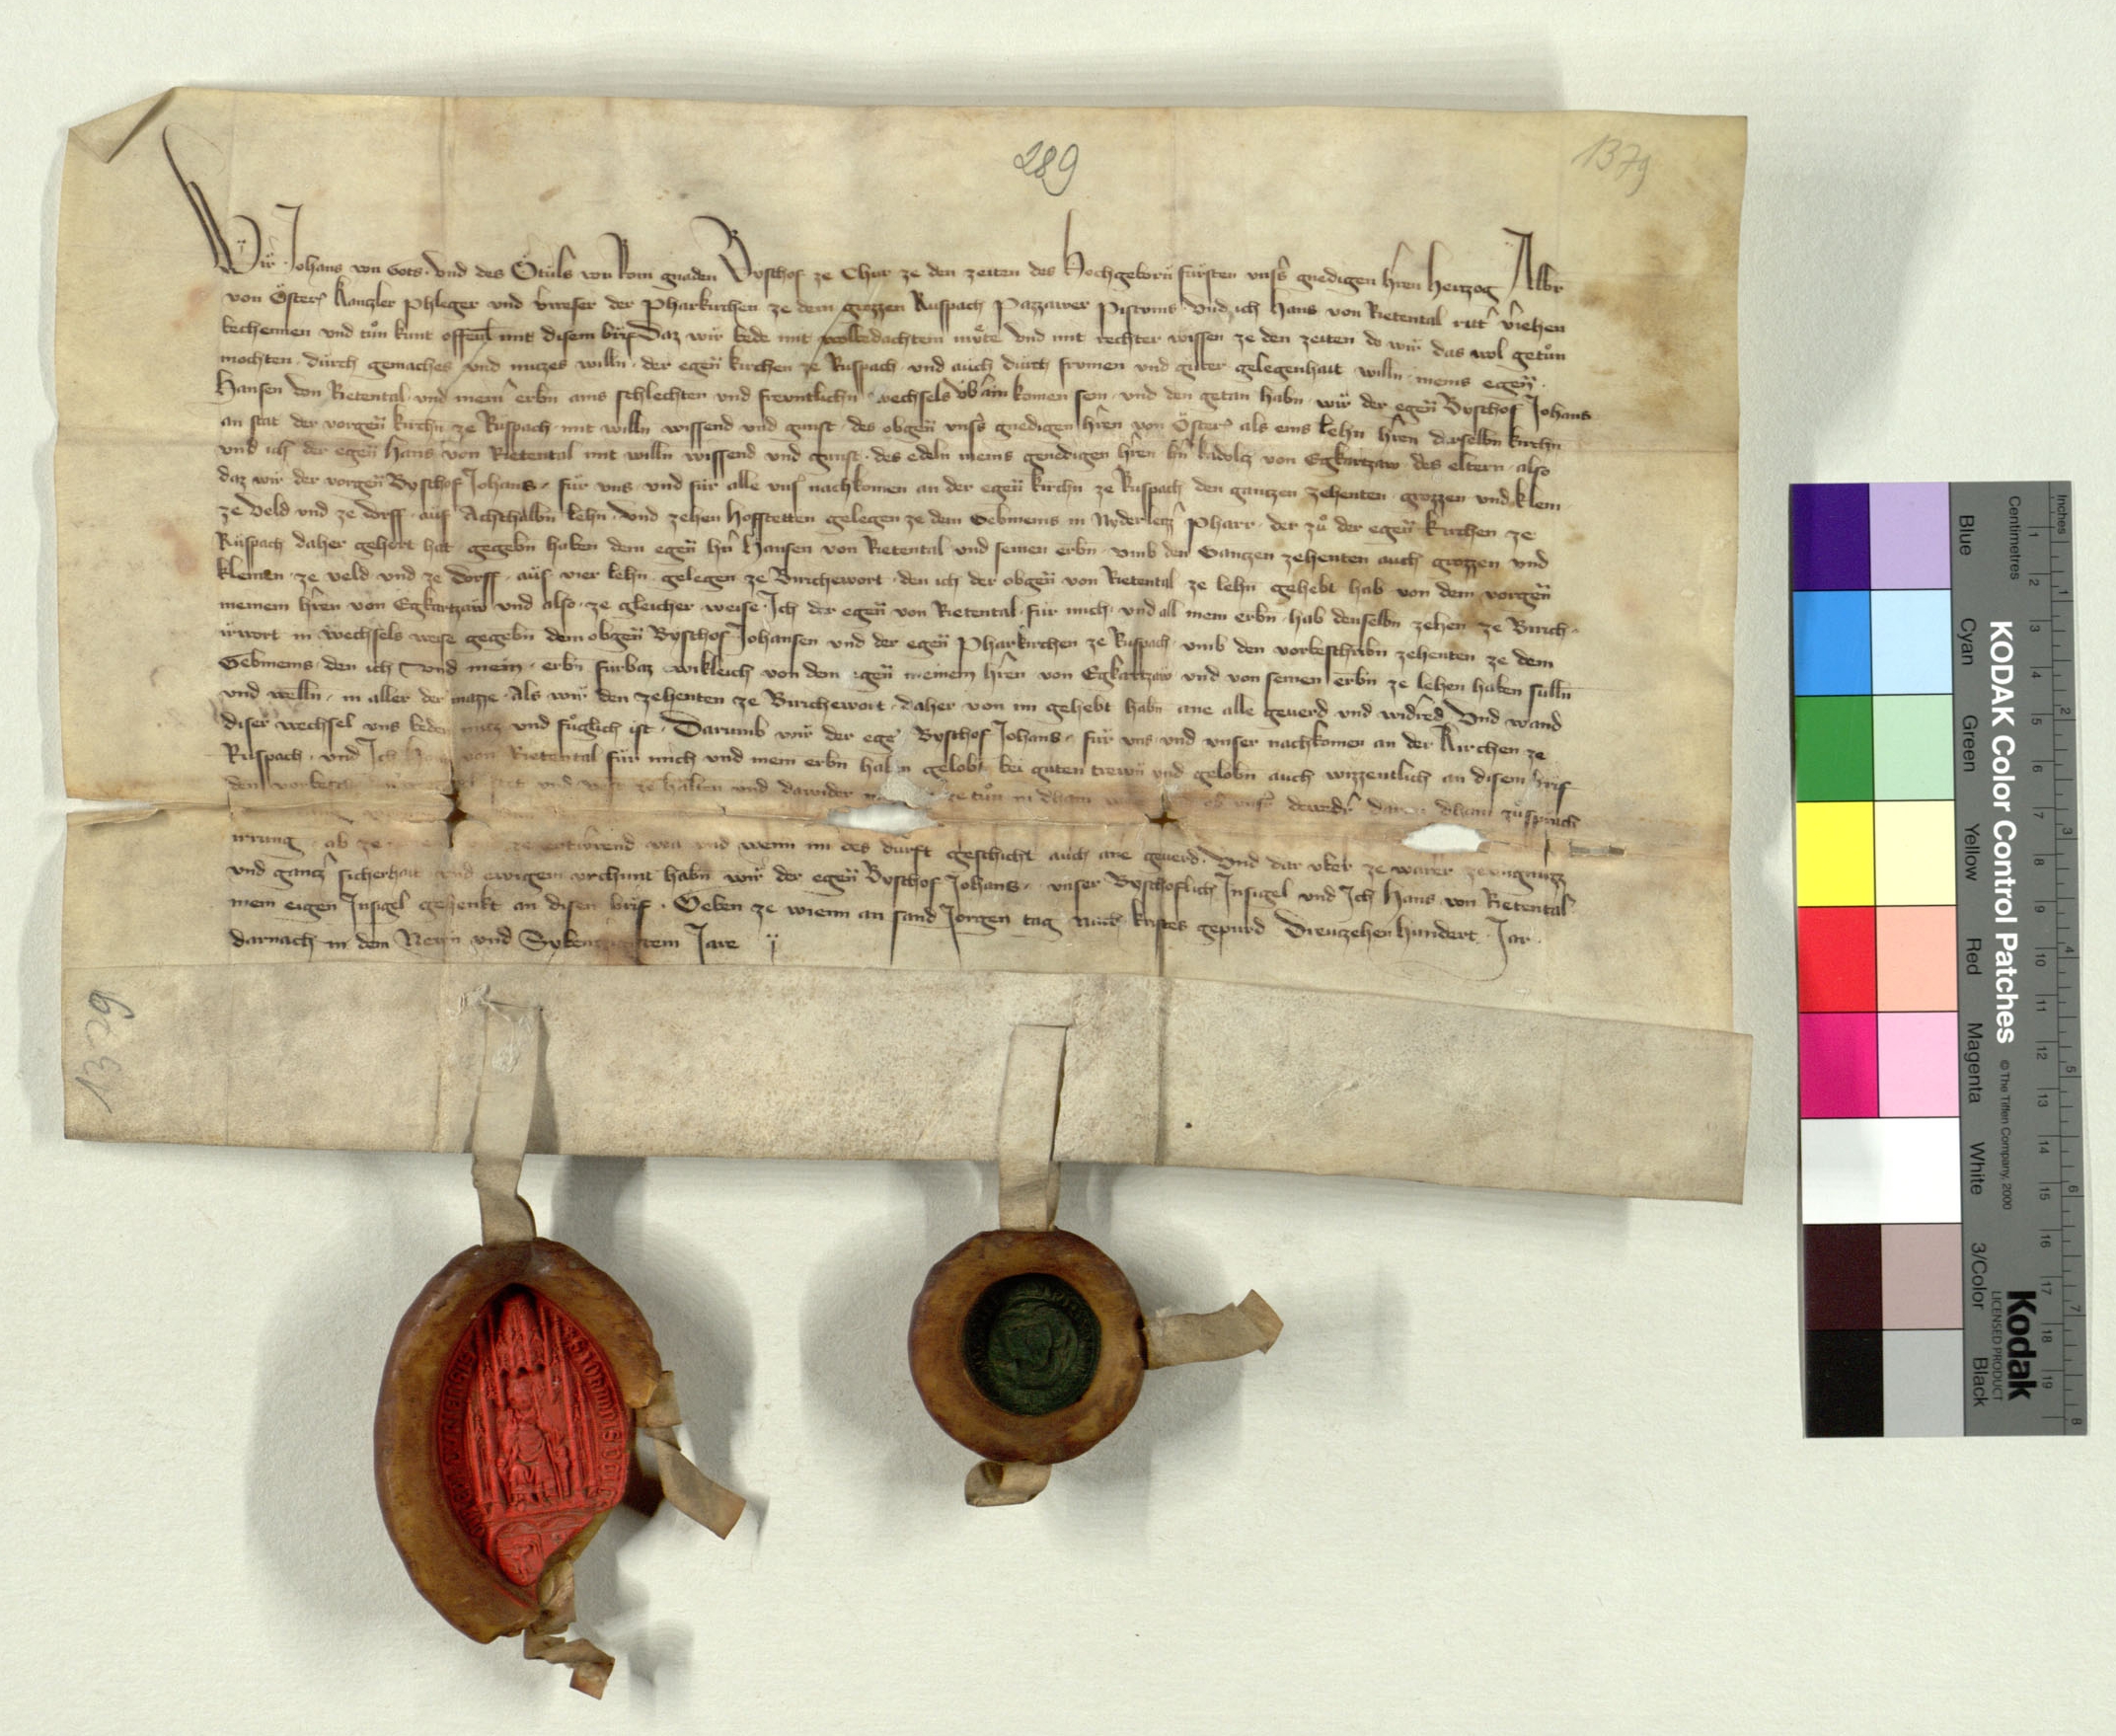 289
1379
Wir Johans von Gots und des Stůls von Rom gnaden Byschof ze Chur ze den zeiten des Hochgeborn fürsten unsers gnedigen hren Hertzog Albr
von Öster Kanzler Phleger und verweser der Pharkirchen ze dem grozzen Ruspach Pazzawer Pistums Und ich Hans von Rietental rittr veriehen
bechennen und tůn kunt offenl mit disem brif Daz wir bede mit wolbedachtem můte und mit rechter wissen ze den zeiten do wir das wol getůn
mochten durch gemaches und nuczes willn der egen kirchen ze Ruspach und auch durch frumen und guter gelegenhait willn meins egen
Hansen von Rietental und meinr erbn ains schlechten und freuntlichn wechsels vberain komen sein und den getan habn wir der egen Byschof Johans
an stat der vorgen kirchn ze Ruspach mit willn wissend und gunst des obgen unsrs gnedigen hren von Öster als eins lehn hren derselbn kirchn
und ich der egen Hans von Rietental mit willn wissend und gunst des edeln meins genedigen hren hrn kadolcz von Egkartzaw des eltern also
daz wir der vorgen Byschof Johans für uns und für alle uns nachkomen an der egen kirchn ze Ruspach den gantzen zehenten grozzen und klein
ze veld und ze dorff auf Achthalbn lehn und zehen hofstetten gelegen ze dem Gebmeins in Nyderleizz Pharr der zů der egen kirchen ze
Rüspach daher gehört hat gegebn haben dem egen hrn Hansen von Rietental und seinen erbn umb den Gantzen zehenten auch grozzen und
kleinen ze veld und ze dorff auf vier lehn gelegen ze Burchewort den ich der obgen von Rietental ze lehn gehebt hab von dem vorgen
meinem hren von Egkartzaw und also ze gleicher weise Ich der egen von Rietental für mich und all mein erbn hab denselbn zehen ze Burch
ŵwort in wechsels weise gegebn dem obgen Byschof Johansen und der egen Pharkirchen ze Ruspach umb den vorbeschribn zehenten ze dem
Gebmeins den ich und mein erbn furbaz wikleich von dem egen meinem hren von Egkartzaw und von seinen erbn ze lehen haben sulln
und welln in aller der mazze Als wir den zehenten ze Burchewort daher von im gehebt habn ane alle geuerd und widred Und wand
diser wechsel uns beden nutz und fůglich ist Darumb wir der ege Byschof Johans für uns und unser nachkomen an der kirchen ze
Ruspach und Ich Hans von Rietental für mich und mein erbn haben gelobt bei guten trewn und gelobn auch wizzentlich an disem brif
den stet und vest ze halten und dawider ze tůn in dhain dewedr dhain zůspruch
irrung ab ze und wenn im des durft geschicht auch ane geuerd Und dar uber ze warer zewgnuzz
und gantzr sicherhait und ewigem urchunt habn wir der egen Byschof Johans unser Byschoflich Insigel und Ich Hans von Rietental
mein eigen Insigel gehenkt an disen brif Geben ze wienn an sand Jorgen tag nach kristes gepurd Dreuzehenhundert Jar
darnach in dem Newn und Sybentzigistem Jare
1379
KODAK Color Control Patches
© The Tiffen Company, 2000
Kodak
LICENSED PRODUCT
Blue Cyan Green Yellow Red Magenta White 3/Color Black
Inches 1 2 3 4 5 6 7 8
Centimetres 1 2 3 4 5 6 7 8 9 10 11 12 13 14 15 16 17 18 19